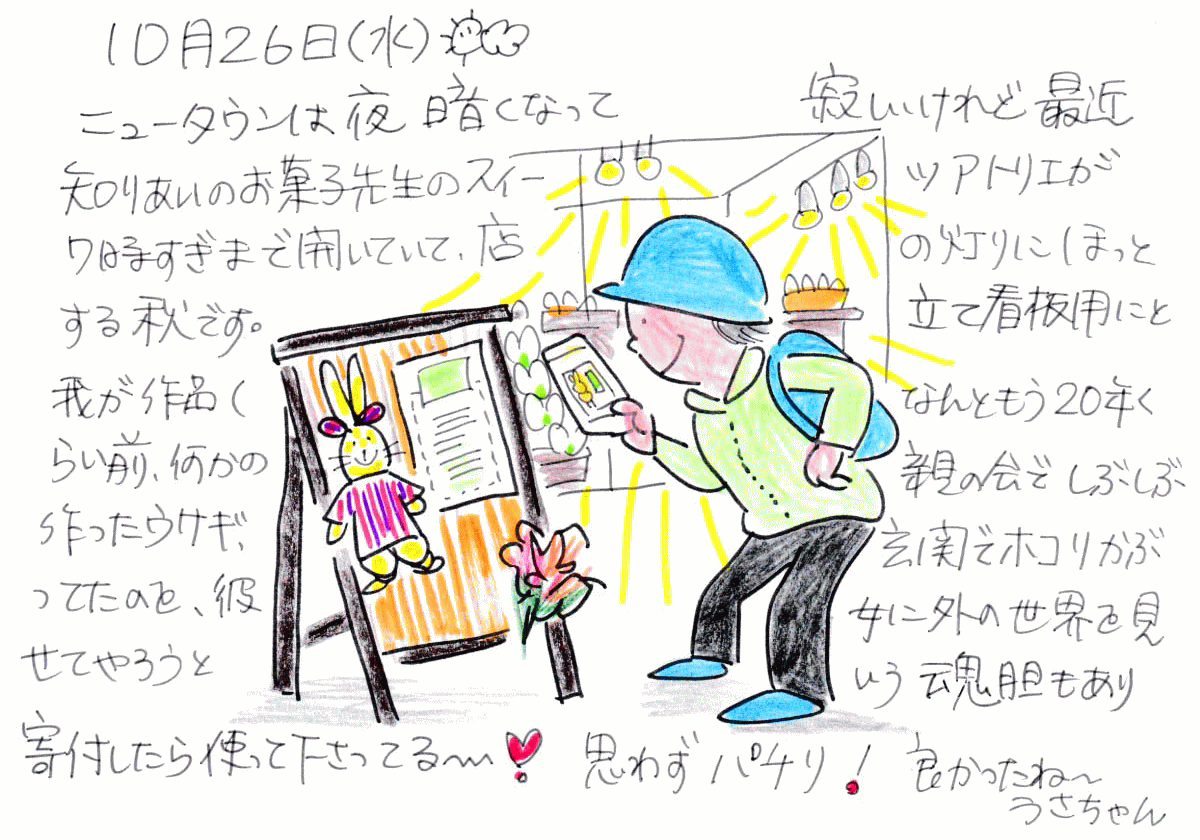 10月26日(水)
ニュータウンは夜 暗くなって 寂しいけれど 最近
知りあいのお菓子先生のスイーツアトリエが
7時すぎまで開いていて、店の灯りにほっと
する秋です。 立て看板用にと
我が作品く なんともう20年く
らい前、何かの 親の会で しぶしぶ
作ったウサギ、 玄関でホコリかぶ
ってたのを、彼女に外の世界を見
せてやろうと いう 魂胆もあり
寄付したら使って下さってる〜 思わず パチリ! 良かったね〜
うさちゃん